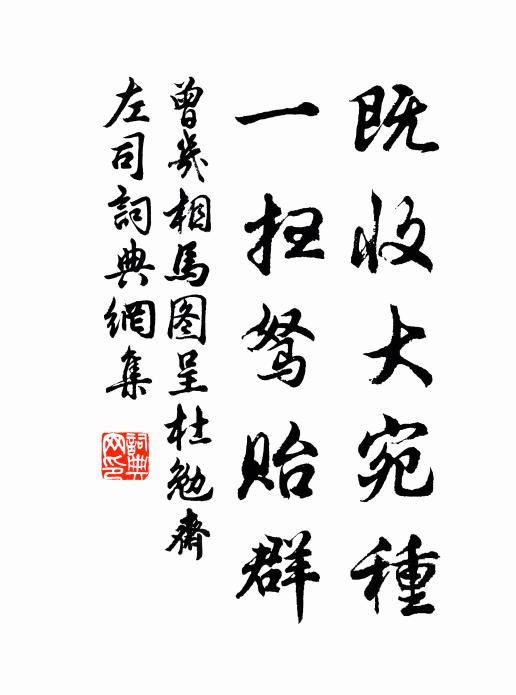 既收大宛種
一扫驽贻群
曾幾相馬图呈杜勉齋
左司詞典網集
詞典网印